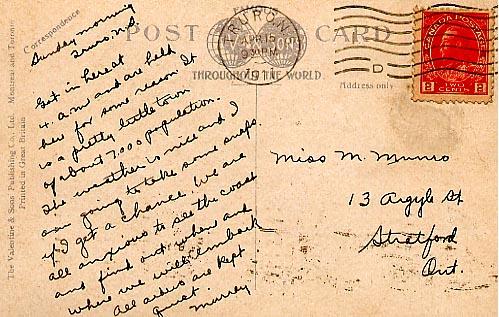 POST CARD
Correspondence
Address only
THROUGHOUT THE WORLD.
TRURO N.S.
APR 15
9 30 PM
CANADA POSTAGE
2 TWO CENTS 2
D
The Valentine & Sons Publishing Co., Ltd. Montreal and Toronto
Printed in Great Britain
Sunday morning
Truro N.S.
Got in here at
4 a.m and are held
here for some reason. It
is a pretty little town
of about 7,000 population.
The weather is nice and I
am going to take some snaps
if I get a chance. We are
all anxious to see the coast
and find out when and
where we will embark
All orders are kept
quiet. Murray
Miss M. Munro
13 Argyle St
Stratford
Ont.